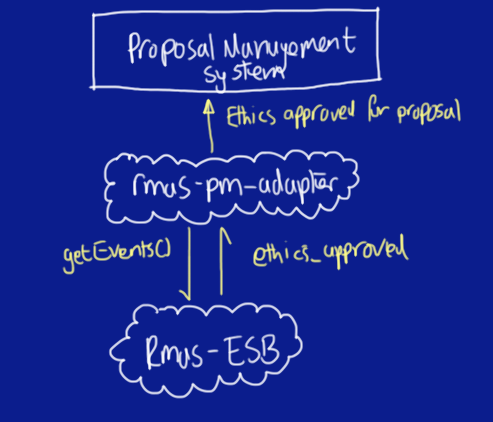 Proposal Management
system
Ethics approved for proposal
rmas-pm-adapter
getEvents()
ethics_approved
Rmas-ESB